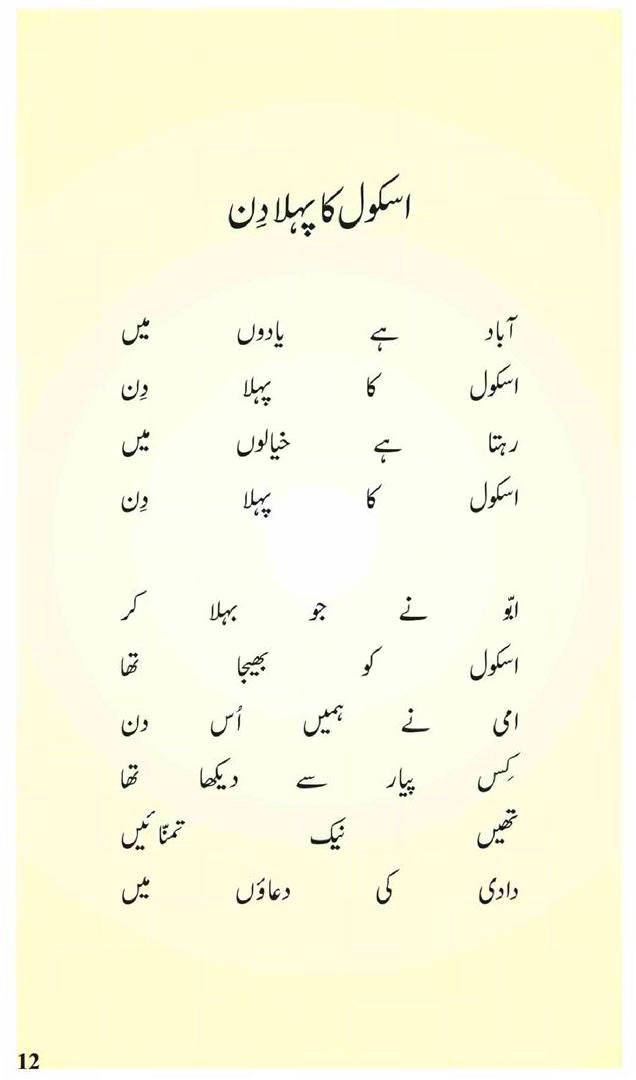 اسکول کا پہلا دِن
آباد ہے یادوں میں
اسکول کا پہلا دِن
رہتا ہے خیالوں میں
اسکول کا پہلا دِن
ابّو نے جو بہلا کر
اسکول کو بھیجا تھا
امی نے ہمیں اُس دن
کِس پیار سے دیکھا تھا
تھیں نیک تمنّائیں
دادی کی دعاؤں میں
12